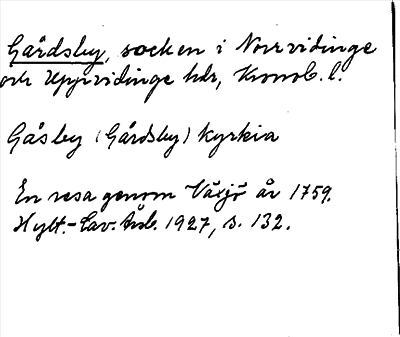 Gårdsby, socken i Norrvidinge
och Uppvidinge hdr, Kronob. l.
Gåsby (Gårdsby) kyrkia
En resa genom Växjö år 1759.
Hylt.-Cav. Årsb. 1927, s. 132.